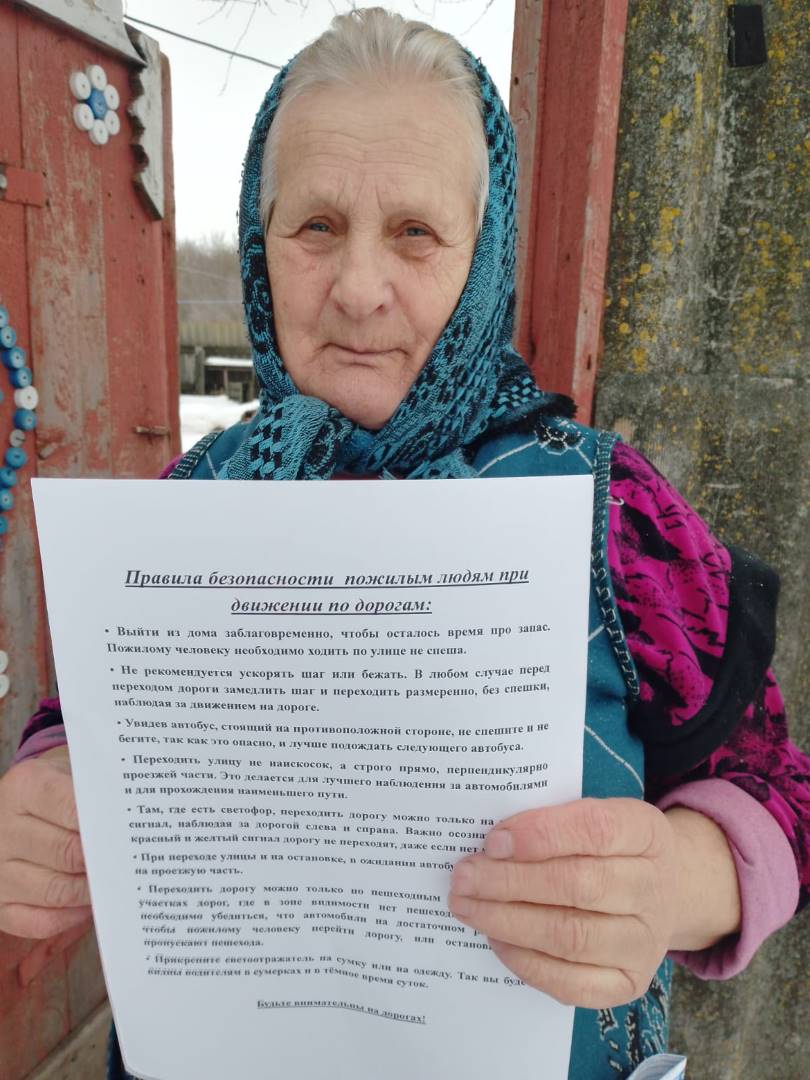 Правила безопасности пожилым людям при
движении по дорогам:
• Выйти из дома заблаговременно, чтобы осталось время про запас.
Пожилому человеку необходимо ходить по улице не спеша.
• Не рекомендуется ускорять шаг или бежать. В любом случае перед
переходом дороги замедлить шаг и переходить размеренно, без спешки,
наблюдая за движением на дороге.
• Увидев автобус, стоящий на противоположной стороне, не спешите и не
бегите, так как это опасно, и лучше подождать следующего автобуса.
• Переходить улицу не наискосок, а строго прямо, перпендикулярно
проезжей части. Это делается для лучшего наблюдения за автомобилями
и для прохождения наименьшего пути.
• Там, где есть светофор, переходить дорогу можно только на
сигнал, наблюдая за дорогой слева и справа. Важно
красный и желтый сигнал дорогу не переходят, даже если нет
• При переходе улицы и на остановке, в ожидании
на проезжую часть.
• Переходить дорогу можно только по пешеходным
участках дорог, где в зоне видимости нет
необходимо убедиться, что автомобили на достаточном
чтобы пожилому человеку перейти дорогу, или
пропускают пешехода.
• Прикрепите светоотражатель на сумку или на одежду. Так вы
видны водителям в сумерках и в тёмное время суток.
Будьте внимательны на дорогах!